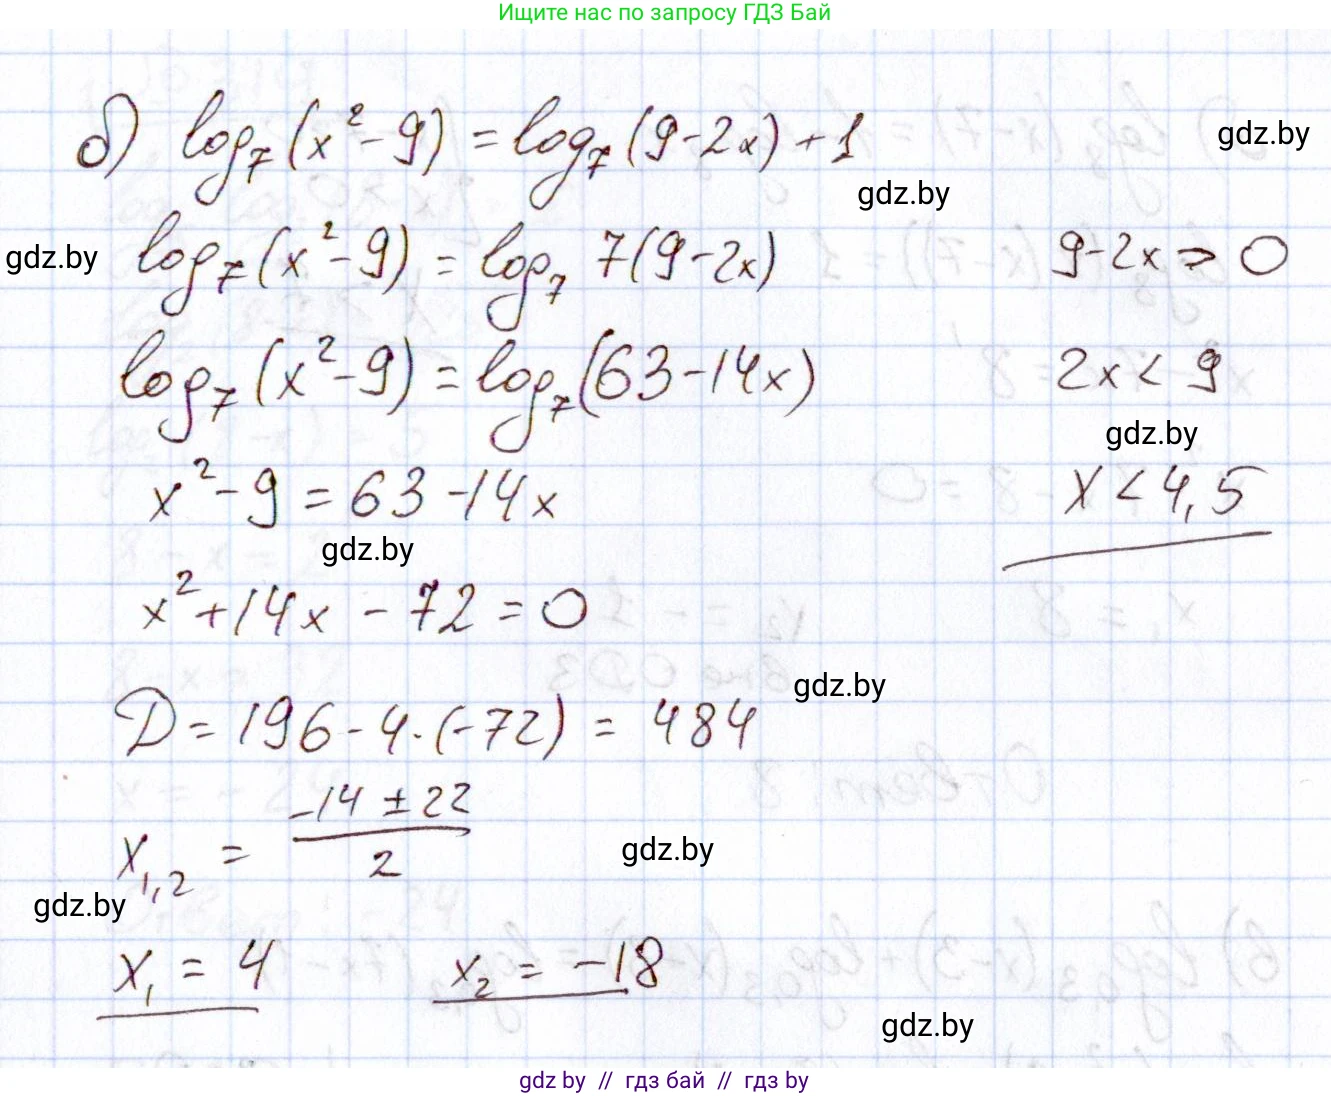 Ищите нас по запросу ГДЗ Бай
б) log₇(x² - 9) = log₇(9 - 2x) + 1
gdz.by
gdz.by
gdz.by
log₇(x² - 9) = log₇ 7(9 - 2x)
9 - 2x > 0
log₇(x² - 9) = log₇(63 - 14x)
2x < 9
gdz.by
x² - 9 = 63 - 14x
x < 4,5
gdz.by
x² + 14x - 72 = 0
gdz.by
D = 196 - 4·(-72) = 484
x₁,₂ = (-14 ± 22)/2
gdz.by
gdz.by
x₁ = 4
x₂ = -18
gdz.by
gdz by // гдз бай // гдз by